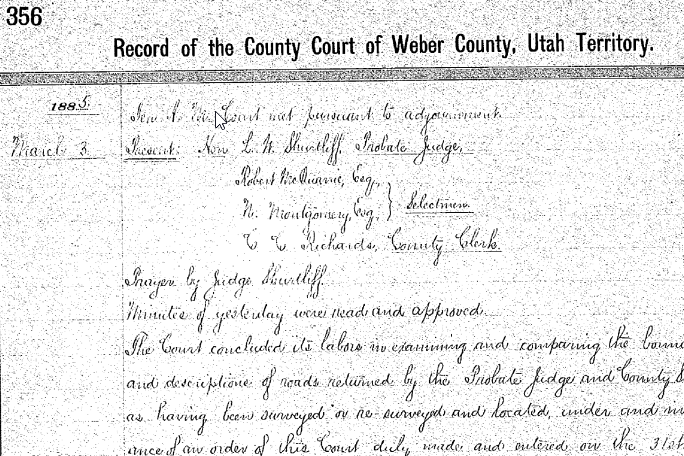 356
Record of the County Court of Weber County, Utah Territory.
1885.
Ten A. M. Court met pursuant to adjournment.
March 3 Present: Hon L. W. Shurtliff, Probate Judge,
Robert McQuarrie, Esq.,
N. Montgomery, Esq., } Selectmen.
C C Richards, County Clerk.
Prayer by Judge Shurtliff.
Minutes of yesterday were read and approved.
The Court concluded its labors in examining and comparing the
and descriptions of roads returned by the Probate Judge and County
as having been surveyed or re-surveyed and located, under and in
ance of an order of this Court duly made and entered on the 31st